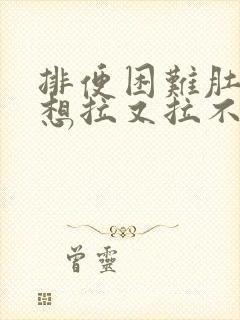 排便困難肚
想拉又拉不
曾靈